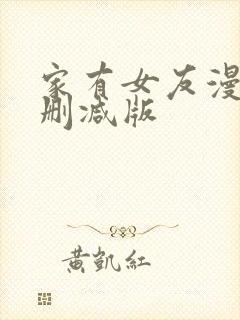 家有女友漫
删减版
黄凯红